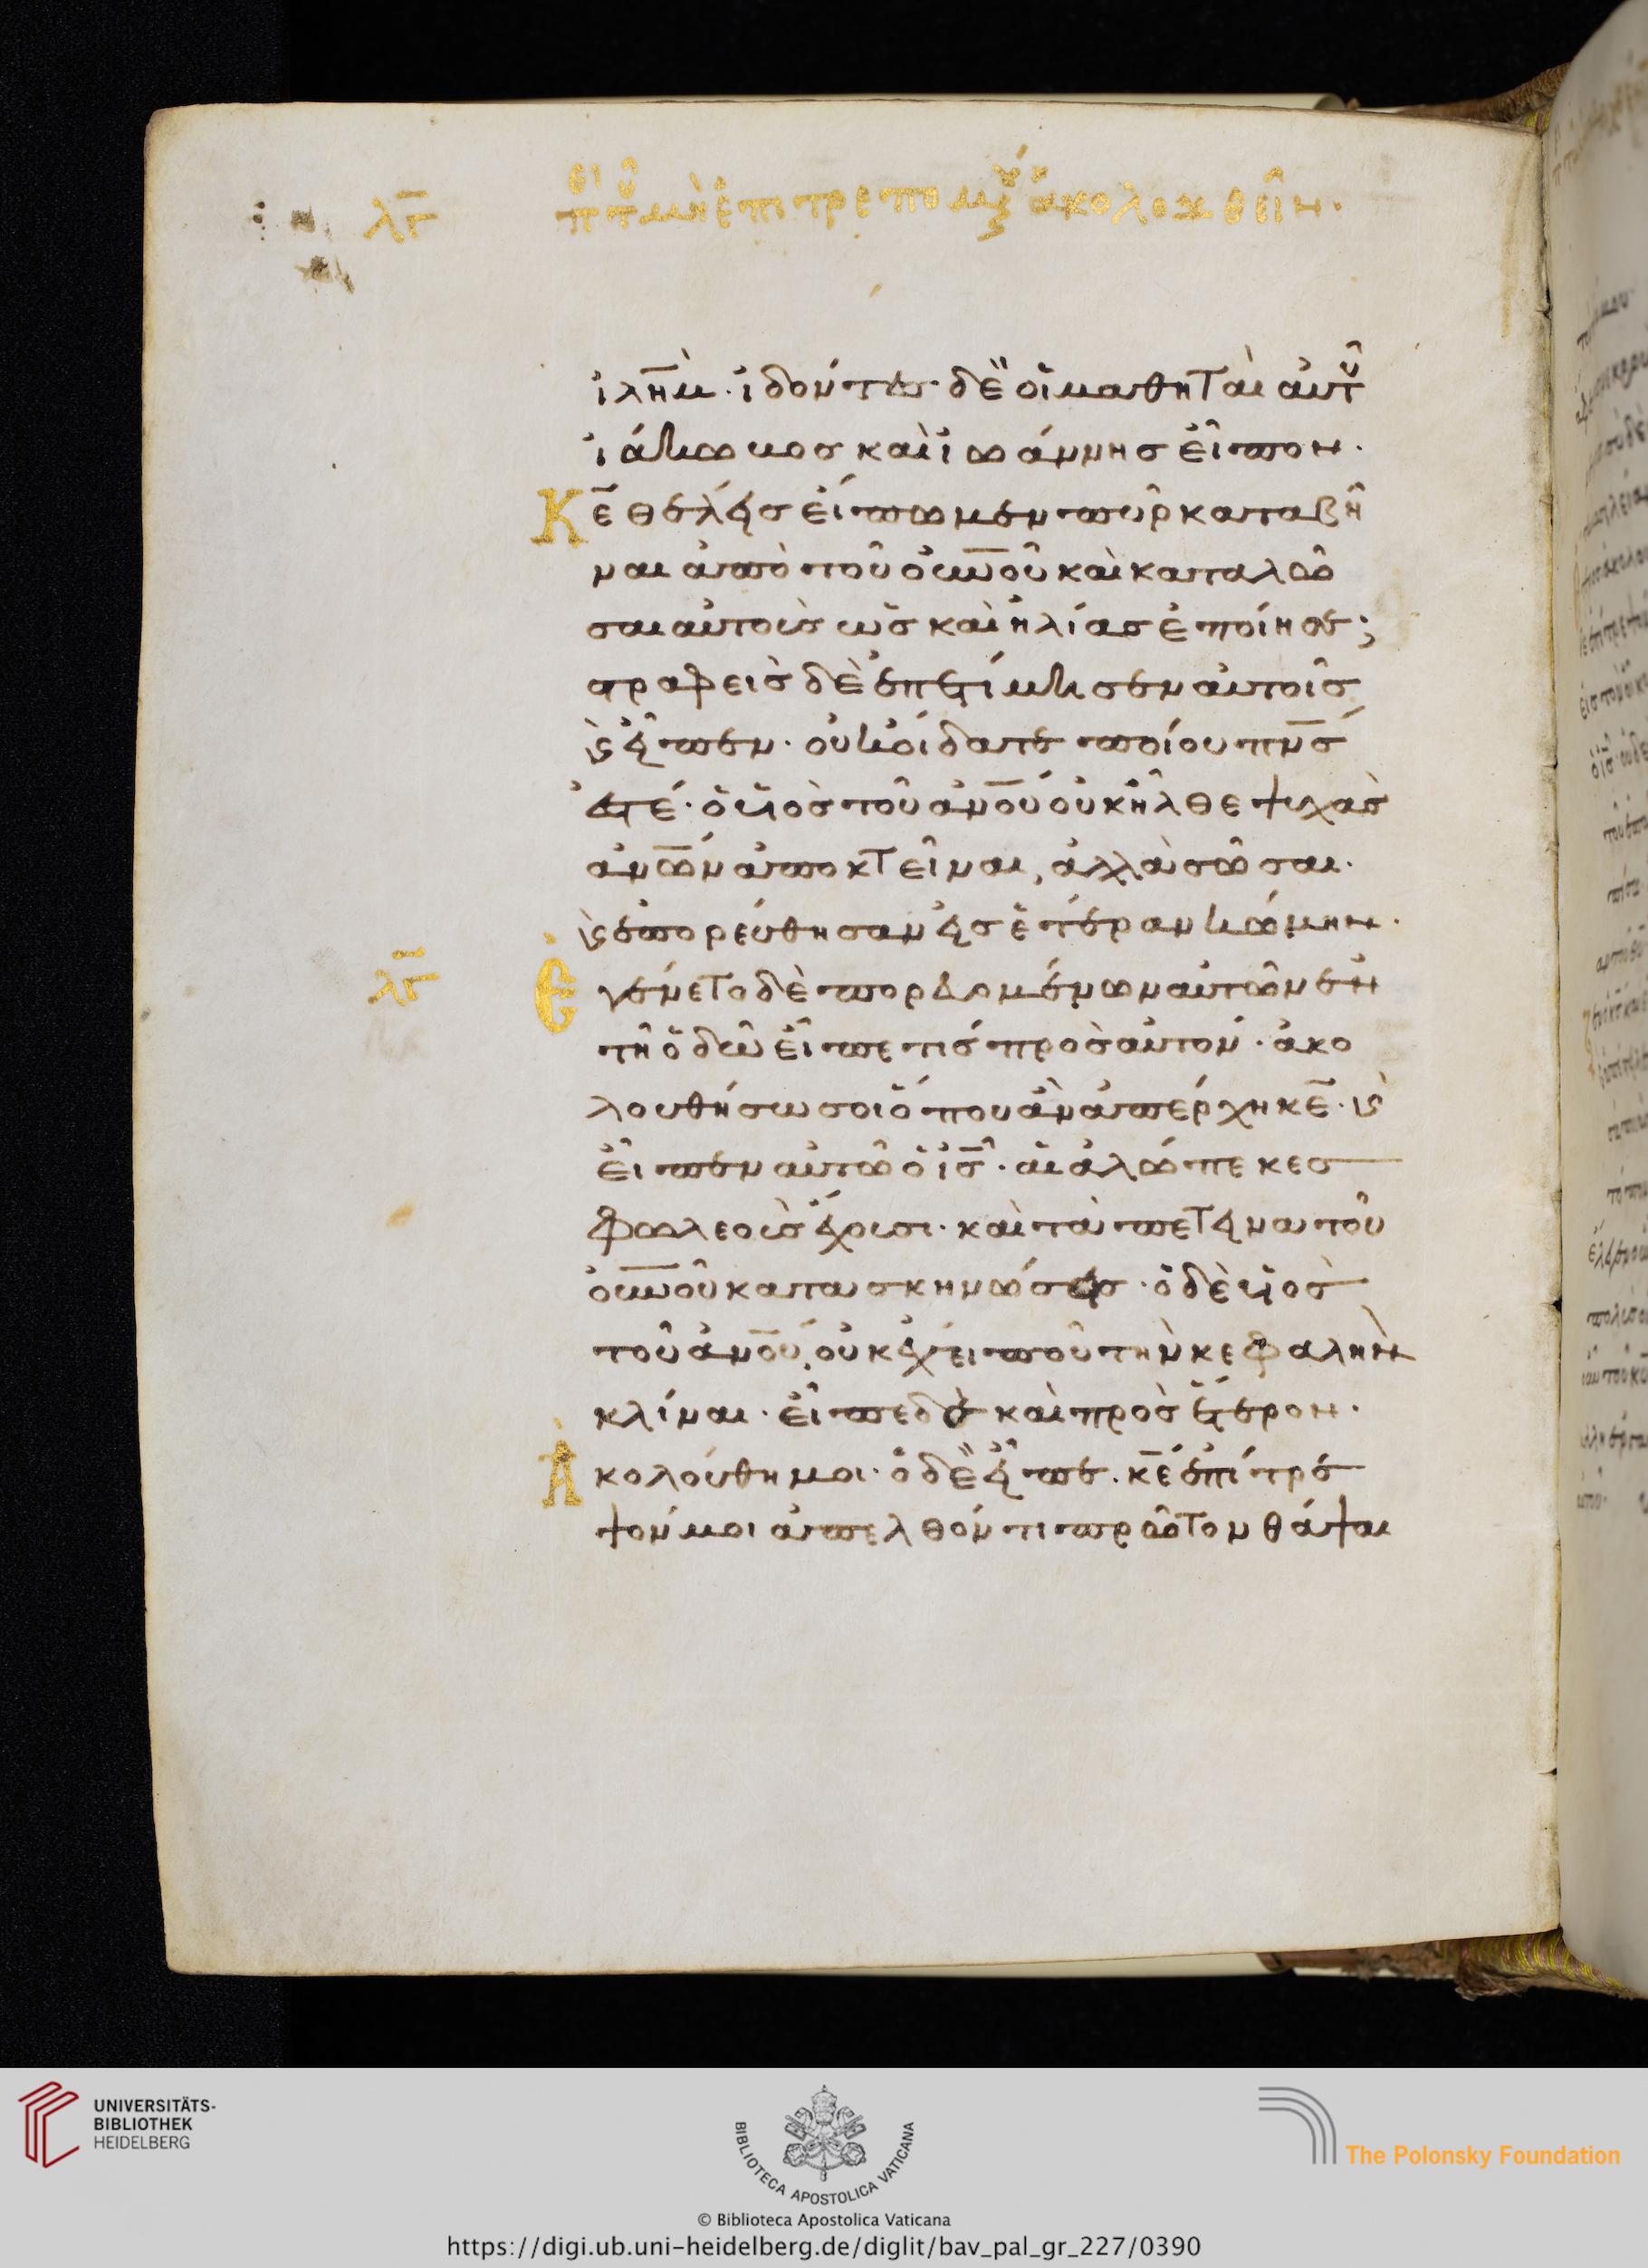 λγ περὶ τοῦ μὴ ἐπιτρεπομένου ἀκολουθεῖν.
ιλημ. ἰδόντες δὲ οἱ μαθηταὶ αὐτοῦ
ἰάκωβος καὶ ἰωάννης εἶπον.
Κε θέλεις εἴπωμεν πῦρ καταβῆ
ναι ἀπὸ τοῦ οὐνοῦ καὶ καταλῶ
σαι αὐτοὺς ὡς καὶ ἠλίας ἐποίησε;
στραφεὶς δὲ ἐπετίμησεν αὐτοῖς
καὶ εἶπεν. οὐκ οἴδατε ποίου πνς
ἐστέ. ὁ υἱὸς τοῦ ἀνου οὐκ ἦλθε ψυχὰς
ἀνων ἀποκτεῖναι, ἀλλὰ σῶσαι.
καὶ ἐπορεύθησαν εἰς ἑτέραν κώμην.
λγ Ἐγένετο δὲ πορευομένων αὐτῶν ἐν
τῇ ὁδῷ εἶπε τις πρὸς αὐτόν. ἀκο
λουθήσω σοι ὅπου ἂν ἀπέρχῃ κε. καὶ
εἶπεν αὐτῷ ὁ ις. αἱ ἀλώπεκες
φωλεοὺς ἔχουσι. καὶ τὰ πετεινὰ τοῦ
οὐνοῦ κατασκηνώσεις. ὁ δὲ υἱὸς
τοῦ ἀνου, οὐκ ἔχει ποῦ τὴν κεφαλὴν
κλίναι. εἶπε δὲ καὶ πρὸς ἕτερον.
Ἀκολούθη μοι. ὁ δὲ εἶπε. κε ἐπίτρε
ψόν μοι ἀπελθόντι πρῶτον θάψαι
UNIVERSITÄTS-
BIBLIOTHEK
HEIDELBERG
BIBLIOTECA APOSTOLICA VATICANA
The Polonsky Foundation
© Biblioteca Apostolica Vaticana
https://digi.ub.uni-heidelberg.de/diglit/bav_pal_gr_227/0390